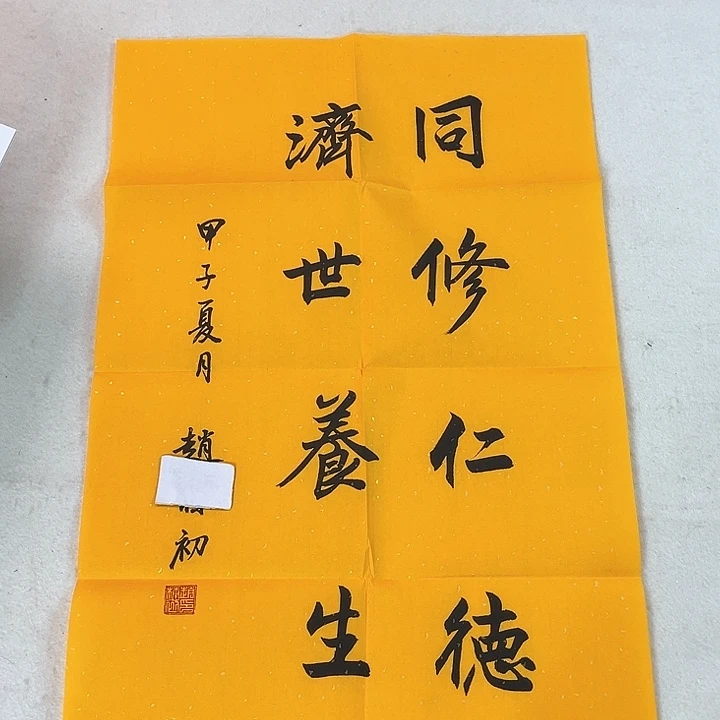 同修仁德
濟世養生
甲子夏月
趙 初